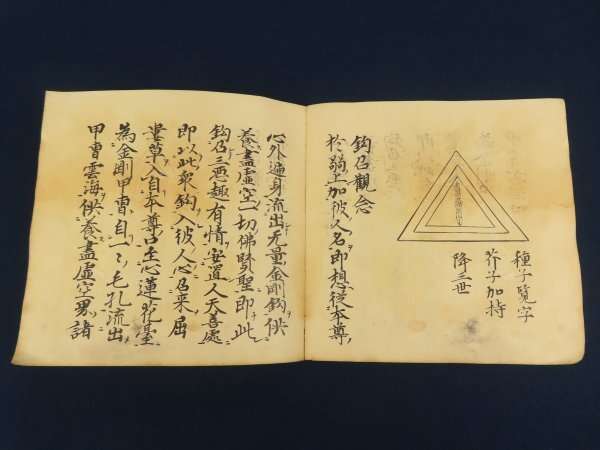 種子覧字
芥子加持
降三世
鈎召觀念
於鵄上加彼人名即想從本尊
心外遍身流出无量金剛鈎供
養盡虚空一切佛賢聖即此
鈎召三惡趣有情安置人天善處
即以此印鈎入彼人心召来屈
婁草入自本尊口至心蓮花臺
為金剛甲冑自一〻毛孔流出
甲冑雲海供養盡虚空界諸